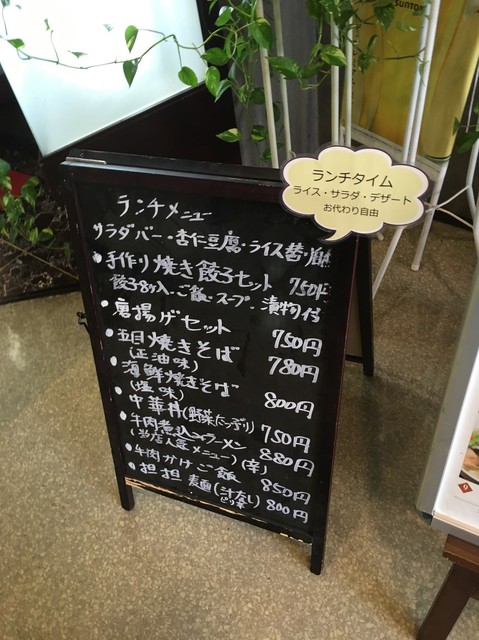 SUNTORY
ランチタイム
ライス・サラダ・デザート
お代わり自由
ランチメニュー
サラダバー・杏仁豆腐・ライス替・
手作り焼き餃子セット 750円
餃子8ヶ入・ご飯・スープ・漬物付
唐揚げセット 750円
五目焼きそば 780円
(正油味)
海鮮焼きそば 800円
(塩味)
中華丼(野菜たっぷり) 750円
牛肉煮込みラーメン 880円
(当店人気メニュー)(辛)
牛肉かけご飯 850円
担担麺(汁なし) 800円
ピリ辛